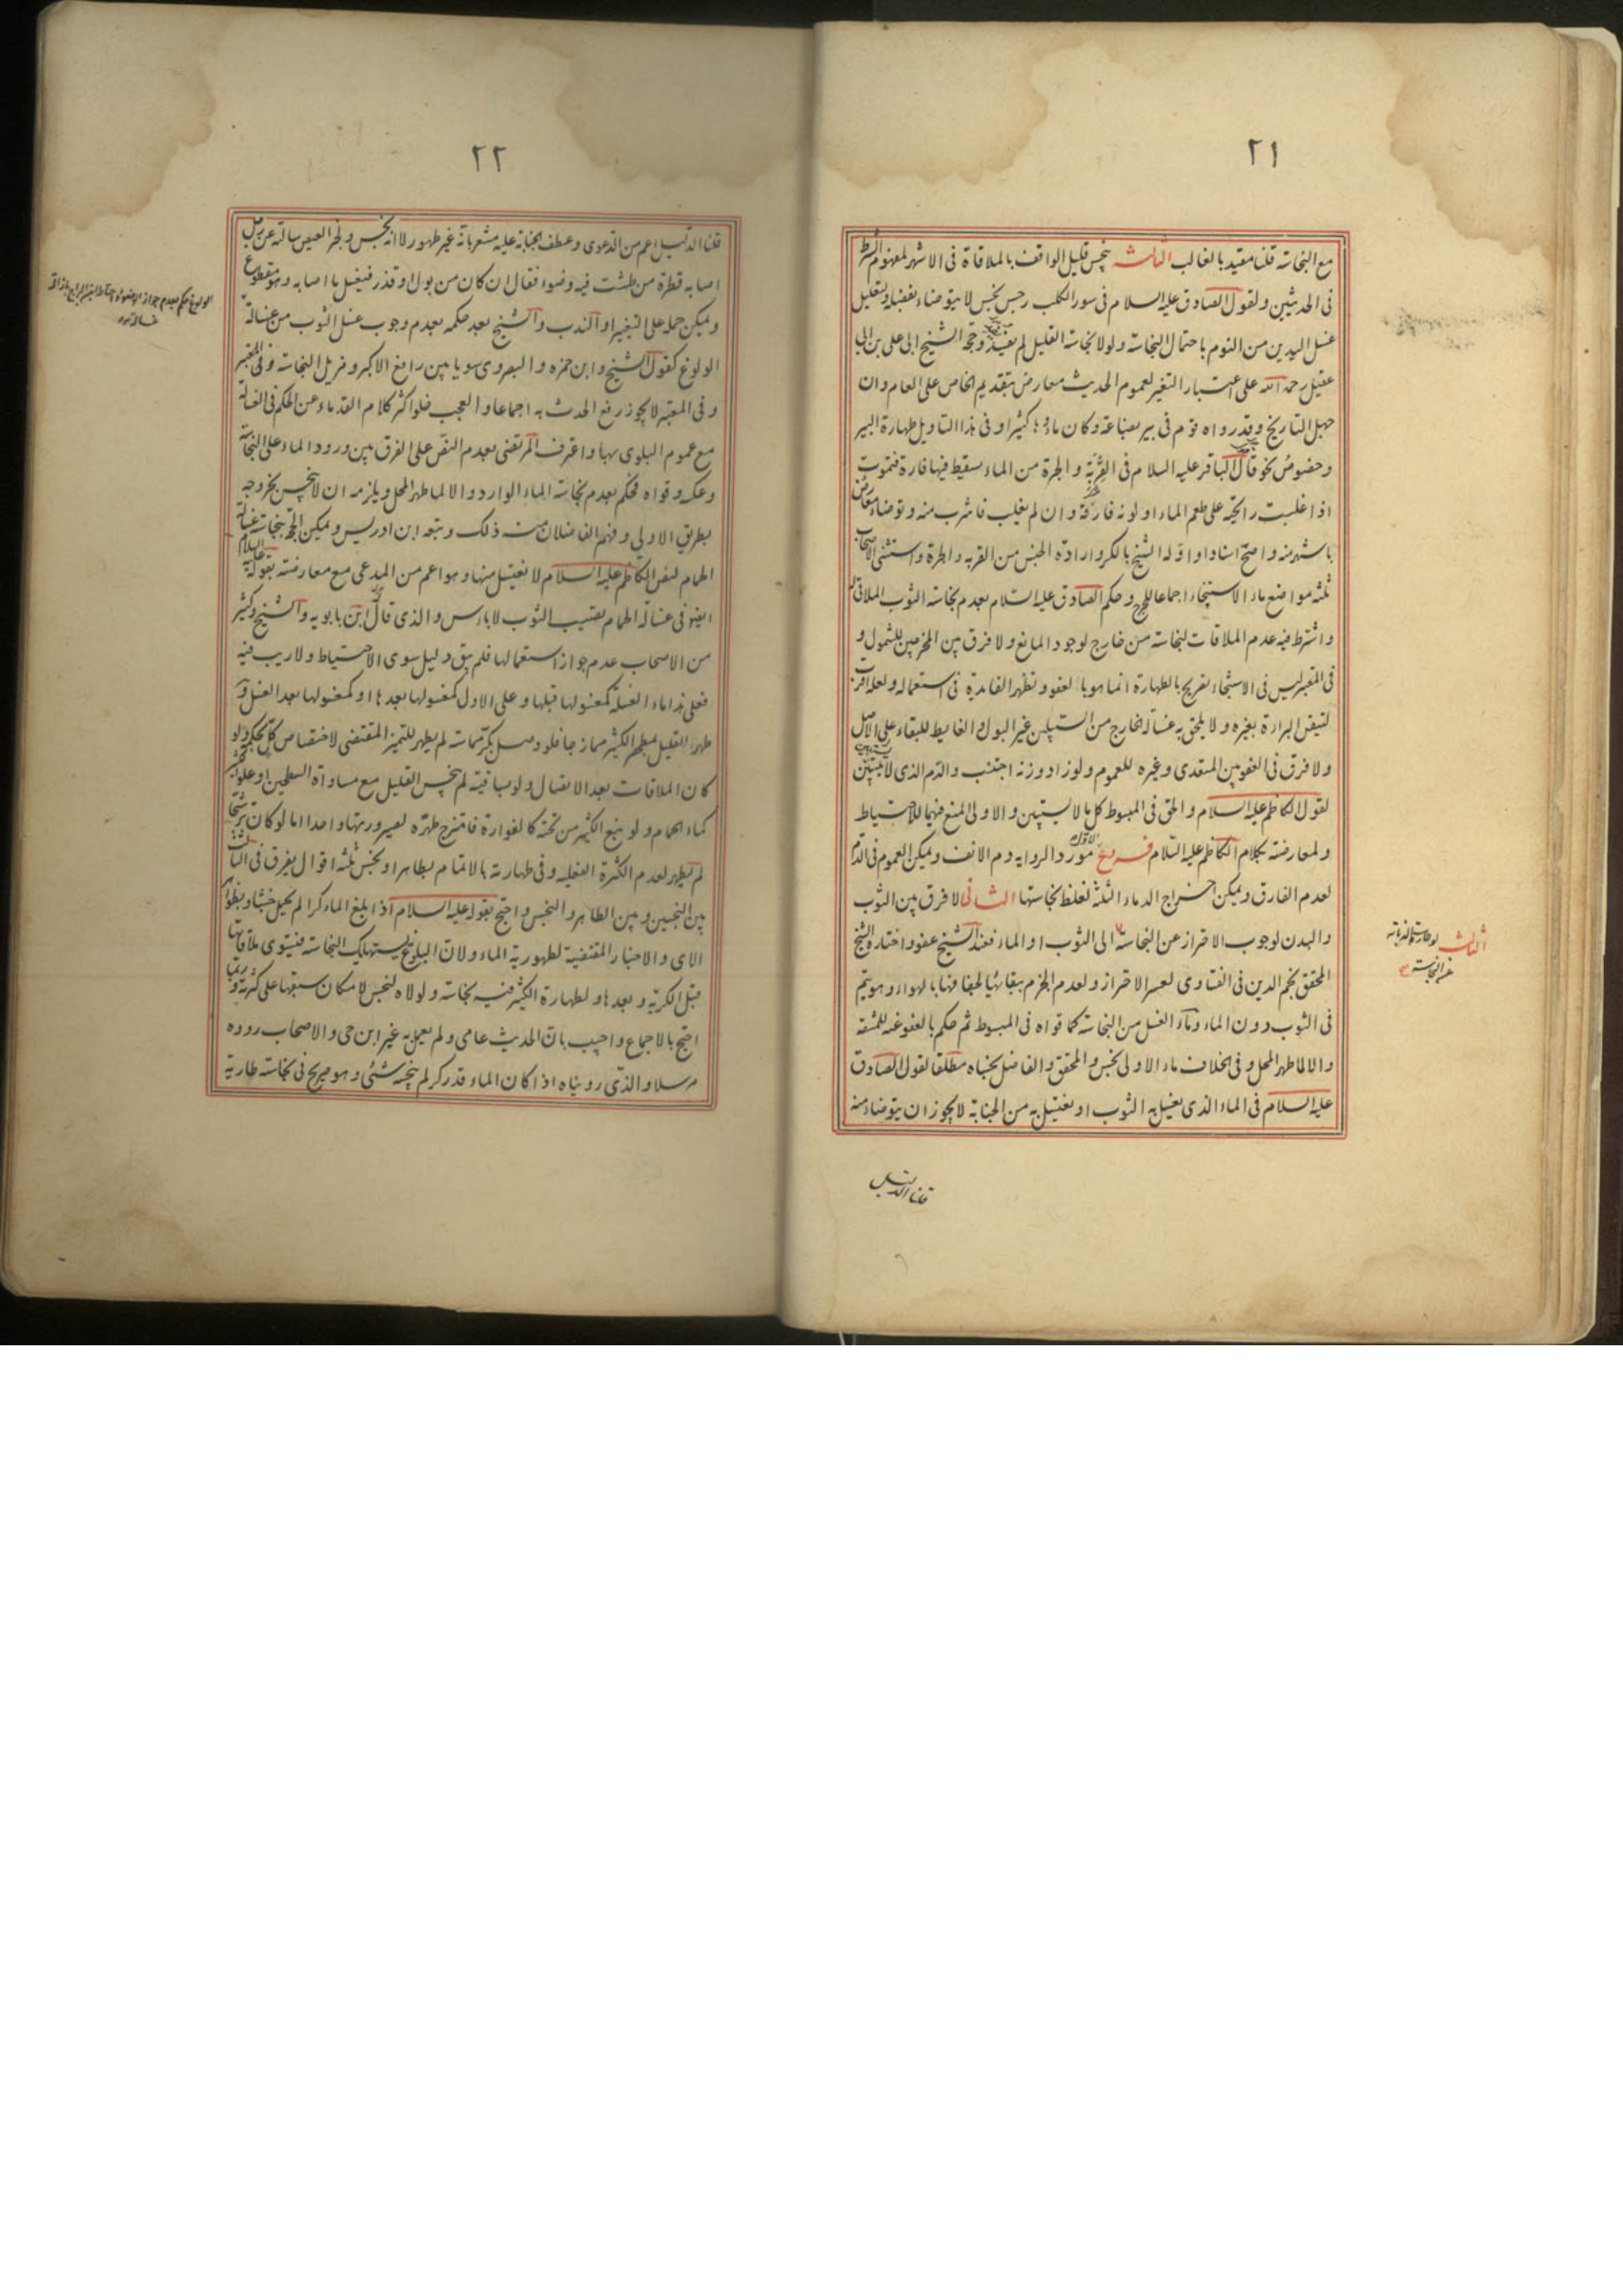 ٢١
مع النجاسة قلنا مقيد بالغالب الثالث ينجس قليل الواقف بالملاقاة فى الاشهر لمفهوم الشرط
فى الحديثين ولقول الصادق عليه السلام فى سور الكلب رجس نجس لا يتوضاء بفضله وتعليل
غسل اليدين من النوم باحتمال النجاسة ولولا نجاسة القليل لم يفد وحجة الشيخ ابى على بن ابى
عقيل رحمه الله على اعتبار التغير لعموم الحديث معارض بتقديم الخاص على العام وان
جهل التاريخ وقد رواه قوم فى بير بضاعة وكان ماؤها كثيرا وفى هذا التاويل طهارة البير
وخصوص نحو قال الباقر عليه السلام فى القربة و الجرة من الماء يسقط فيها فارة فتموت
اذا غلبت رائحته على طعم الماء او لونه فارقه وان لم يغلب فاشرب منه وتوضاء معارض
باشهر منه واصح اسنادا و اوله الشيخ بالكر وارادة الجنس من القربة والجرة واستثنى الاصحاب
ثلثه مواضع ماء الاستنجاء اجماعا للحرج وحكم الصادق عليه السلام بعدم نجاسة الثوب الملاقى له
واشترط فيه عدم الملاقات لنجاسة من خارج لوجود المانع ولا فرق بين المخرجين للشمول و
فى المعتبر ليس فى الاستنجاء تصريح بالطهارة انما هو بالعفو وتظهر الفايدة فى استعماله ولعله اقرب
لتيقن البراءة بغيره ولا يلحق به غسالة الخارج من السبيلين غير البول والغايط للبقاء على الاصل
ولا فرق فى العفو بين المتعدى وغيره للعموم ولو زاد وزنه اجتنب والدم الذى لا يستبين
لقول الكاظم عليه السلام والحق فى المبسوط كل ما لا يستبين والاولى المنع فيهما للاحتياط
ولمعارضته بكلام الكاظم عليه السلام فروع الاول مورد الرواية دم الانف ويمكن العموم فى الدم
لعدم الفارق ويمكن اخراج الدماء الثلثة لغلظ نجاستها الثانى لا فرق بين الثوب
والبدن لوجوب الاحتراز عن النجاسة الى الثوب او الماء فعند الشيخ عفو واختاره الشيخ
المحقق نجم الدين فى الفتاوى لعسر الاحتراز ولعدم الجزم ببقائها لجفافها بالهواء وهو يتم
فى الثوب دون الماء وماء الغسل من النجاسة كما قواه فى المبسوط ثم حكم بالعفو عنه للمشقة
والا لما طهر المحل وفى الخلاف ماء الاولى نجس والمحقق والفاضل نجساه مطلقا لقول الصادق
عليه السلام فى الماء الذى يغسل به الثوب او يغتسل به من الجنابة لا يجوز ان يتوضاء منه
قلنا الدليل
الثالث لو طارت الذبابة
عن النجاسة
٢٢
قلنا الدليل اعم من الدعوى وعطف الجنابة عليه مشعر بانه غير طهور لا انه نجس ولخبر العيص سالته عن رجل
اصابه قطرة من طشت فيه وضوء فقال ان كان من بول او قذر فيغسل ما اصابه وهو مقطوع
ويمكن حمله على التغير او الندب والشيخ بعد حكمه بعدم وجوب غسل الثوب من غسالة
الولوغ كقول الشيخ وابن حمزه والبصروى سويا بين رافع الاكبر ومزيل النجاسة
وفى المعتبر لا يجوز رفع الحدث به اجماعا والعجب خلو اكثر كلام القدماء عن الحكم فى الغسالة
مع عموم البلوى بها واعترف المرتضى بعدم النص على الفرق بين ورود الماء على النجاسة
وعكسه وقواه فحكم بعدم نجاسة الماء الوارد والا لما طهر المحل ويلزمه ان لا ينجس بخروجه
بطريق الاولى وفهم الفاضلان منه ذلك وتبعه ابن ادريس ويمكن الحجة بنجاسة غسالة
الحمام لنص الكاظم عليه السلام لا تغتسل منها وهو اعم من المدعى مع معارضته بقوله عليه السلام
ايضا فى غسالة الحمام تصيب الثوب لا باس والذى قال ابن بابويه والشيخ وكثير
من الاصحاب عدم جواز استعمالها فلم يبق دليل سوى الاحتياط ولا ريب فيه
فعلى هذا ماء الغسلة كمغسولها قبلها وعلى الاول كمغسولها بعدها او كمغسولها بعد الغسل و
طهر القليل بمطهر الكثير ممازجا فلو وصل بكر مماسة لم يطهر للتميز المقتضى لاختصاص كل بحكمه ولو
كان الملاقات بعد الاتصال ولو بساقية لم ينجس القليل مع مساواة السطحين او علو الكثير
كماء الحمام ولو نبع الكثير من تحته كالفوارة فامتزج طهره لصيرورتهما واحدا اما لو كان ترشحا
لم يطهر لعدم الكثرة الفعلية وفى طهارته بالاتمام بطاهر او نجس ثلثه اقوال يفرق فى الثالث
بين النجس وبين الطاهر والنجس واحتج بقوله عليه السلام اذا بلغ الماء كرا لم يحمل خبثا وبظواهر
الاى والاخبار المقتضية لطهورية الماء ولان البلوغ يستهلك النجاسة فيستوى ملاقاتها
قبل الكرية وبعدها ولطهارة الكثير فيه نجاسة ولولاه لنجس لامكان سبقها على كثرته وربما
احتج بالاجماع واجيب بان الحديث عامى ولم يعمل به غير ابن حى والاصحاب رووه
مرسلا والذى رويناه اذا كان الماء قدر كر لم ينجسه شئ وهو صريح فى نجاسة طارية